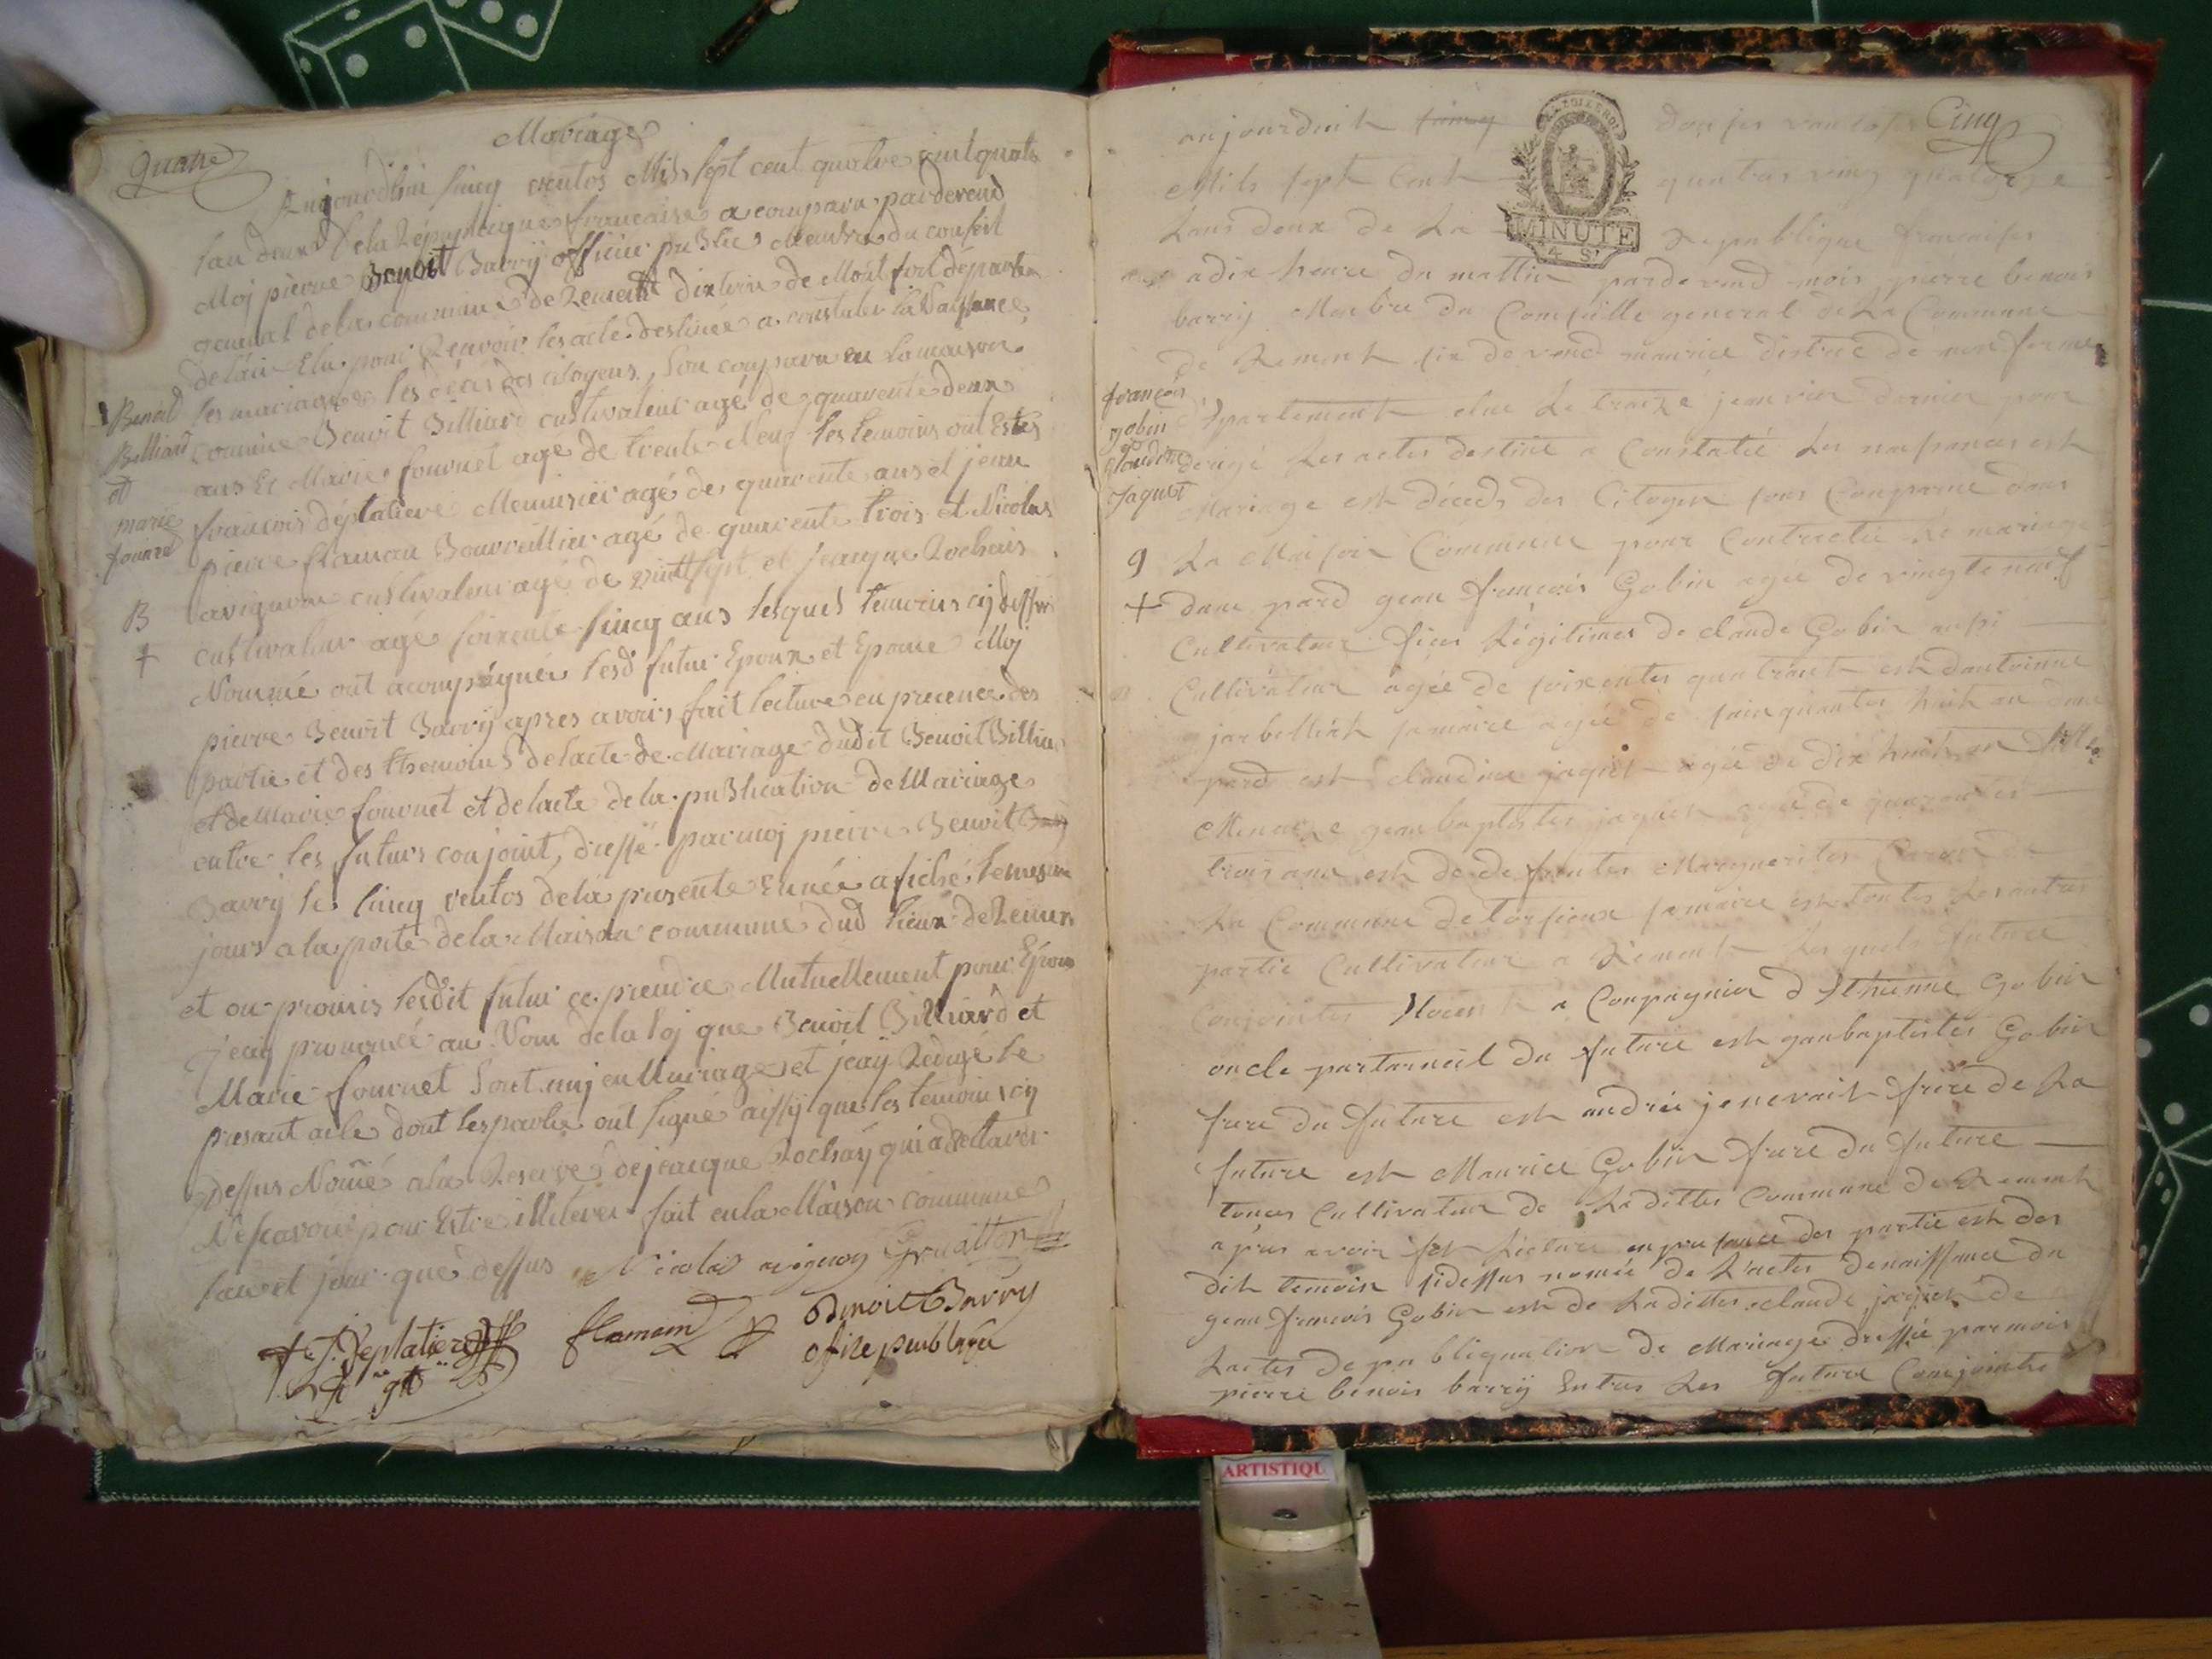 Mariage
Quatre
Aujourdhui sincq ventos Mil sept cent quatre vint quatorze
lan deuxe de la Republique francaise a comparu par devend
Moj pierre Benoit Barrij officier publie Membre du conseil
general de la commune de Remens distrie de Mont ferl departem
delain Elu pour Recevoir les acte destinée a constater la Naissance
les mariages les déces des citoyens, son conparu en la maison
commune Benoit Billiard cultivateur agé de quarente deux
ans Et Marie fournet agé de trente Neuf les temoins ont Estes
francois déplatiere Menuisier agé de quarente ans et jean
pierre flaman Bourrellier agé de quarente trois et Nicolas
avignon cultivateur agé de vint sept et jeacque Rochais
cultivateur agé soixente sincq ans lesquels temoins cij dessus
Nommé ont acompagnér lesd futur Epoux et Epouse Moj
pierre Benoit Barrij apres avoirs fait lecture en precence des
partie et des themoins de lacte de Mariage dudit Benoit Billiard
et de Marie fournet et de lacte de la publication de Mariage
entre les futurs conjoint, dressé par moj pierre Benoit
Barrij le sincq ventos de la presente Ennée afiché le mesme
jours a la porte de la Maison commune dud lieux de Remens
et on promis lesdit futur ce prendre Mutuellement pour Epoux
jeaij prononcé au Nom de la loj que Benoit Billiard et
Marie fournet sont unj en Mariage et jeaij Redigé le
presant acte dont les partie ont signé aissij que les temoins cij
dessus Nomé a la Reserve de jeacque Rochaij qui a declarer
Ne scavoir pour Estre illiterer fait en la Maison commune
lan et jour que dessus Nicolas avignon Gruatton
f J. Deplatiere flamand Benoit Barry
ofise publique
Benoit
Billiard
et
marie
fournet
B
+
Cinq
aujourduit
Mils sept Cent quatres ving quatorze
Lans deux de La Republique francaise
MINUTE
4 S.
a dix heure du mattin parde vend mois pierre benois
barrij Menbre du Conseille general de La Commune
de Rement six de vend maurice distric de
departement elue Le traize jeanvier darnier pour
derigé Les actes destiné a Constatée Les naisances est
Mariage est déceds des Citoyen sons Conparue dans
La Maison Commune pour Contractée Le mariage
dune pard gean francois Gobin agée de vingte neuf
Cultivateur fices Légitimes de claude Gobin ausi
Cultivateur agée de soixentes quatrent est dantoinne
jarbellieh samaire agée de sainquantes huit an dune
pard est claudine jaquet agée de dix huit an fille
Mineure gean baptistes jaquet agée de quarantes
trois ans est de de funtes Marguerites
La Commune de Torsieux samaire est toutes Les autres
partie Cultivateur a Rement Les quels future
Conjointes a Conpagnier d Ithienne Gobin
oncle parterneil du future est ganbaptistes Gobin
frere du future est andrée jenevait frere de La
future est Maurice Gobin frere du future
tences Cultivateur de La dittes Commune de Rement
apres avoir fet Lecture enpresance des partie est des
dit temoin sidessus nomée de L'actes denaissance du
gean francois Gobin est de La dittes claude jaquet de
Lactes de publiquation de Mariage dressée parmois
pierre benois barrij Entres Les future Conjointes
francois
gobin
et
Claudine
Jaquet
9
+
ARTISTIQU